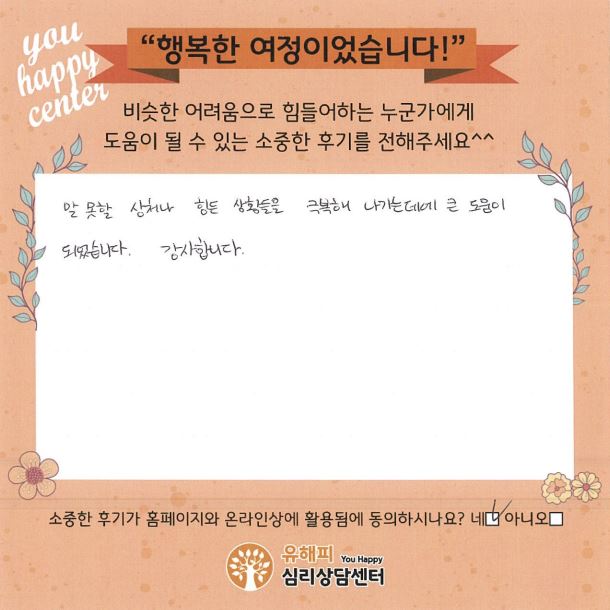 you
happy
center
“행복한 여정이었습니다!”
비슷한 어려움으로 힘들어하는 누군가에게
도움이 될 수 있는 소중한 후기를 전해주세요^^
말 못할 상처나 힘든 상황들을 극복해 나가는데에 큰 도움이
되었습니다. 감사합니다.
소중한 후기가 홈페이지와 온라인상에 활용됨에 동의하시나요? 네☑ 아니오☐
유해피 You Happy
심리상담센터